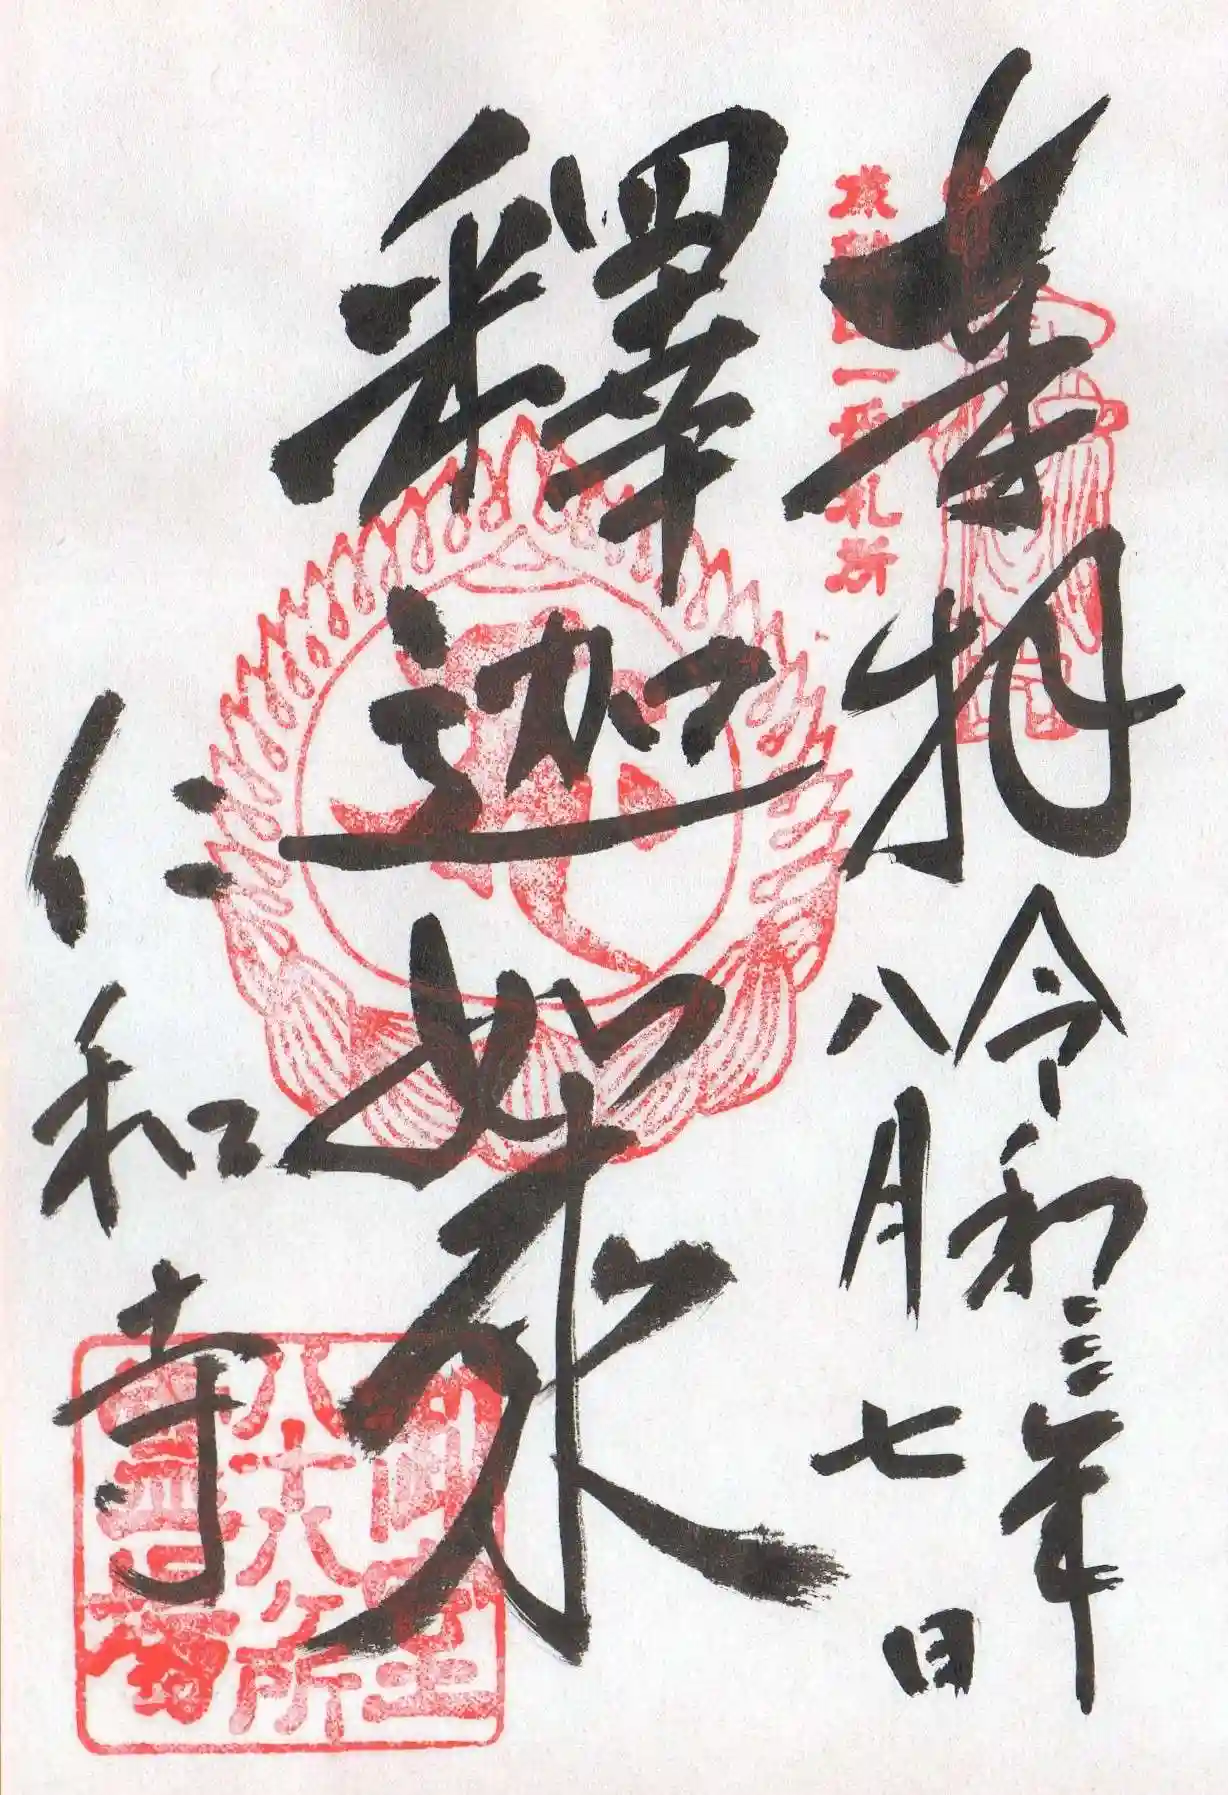 奉拝
令和三年
八月七日
一番札所
釋迦如来
仁和寺
八十八ヶ所